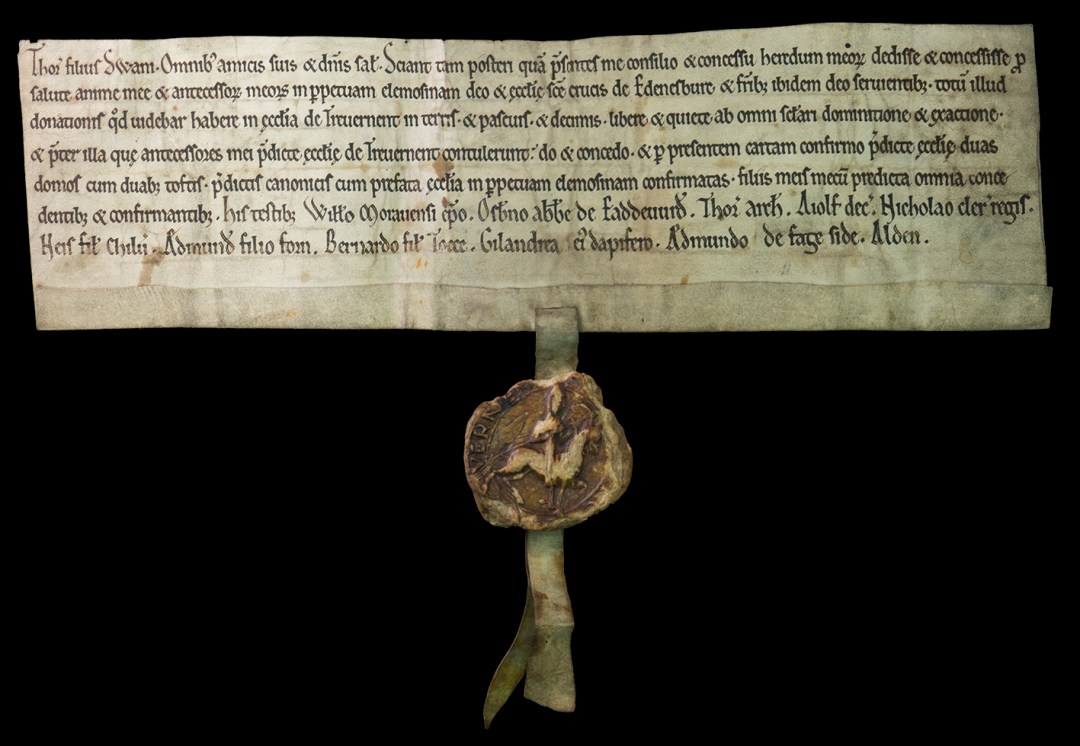 Thor filius Swani. Omnib; amicis suis & dñis sal̃. Sciant tam posteri quã p̃sentes me consilio & concessu heredum meoꝝ dedisse & concessisse ꝓ
salute anime mee & antecessoꝝ meoꝝ in ꝑpetuam elemosinam deo & ęcclię sc̃e crucis de Edenesburc & fr̃ib; ibidem deo seruientib;. totũ illud
donationis qd̃ uidebar habere in ęccl̃ia de Treuernent in terris. & pascuis. & decimis. libere & quiete ab omni scl̃ari dominatione & exactione.
& p̃ter illa quę antecessores mei p̃dicte ęcclię de Treuernent contulerunt. do & concedo. & ꝑ presentem cartam confirmo p̃dicte ęcclię duas
domos cum duab; toftis. p̃dictis canonicis cum prefata ęccl̃ia in ꝑpetuam elemosinam confirmatas. filiis meis mecũ predicta omnia conce
dentib; & confirmantib;. his testib; Will̃o Morauensi ep̃o. Osb̃no abb̃e de Gaddewrð. Thor arch̃. Aiolf dec̃. Nicholao cler̃ regis.
Neis fil̃ Chilũ. Ædmund filio forn. Bernardo fil̃ Tocce. Gilandrea ei dapifero. Ædmundo de fage side. Alden.
VERN